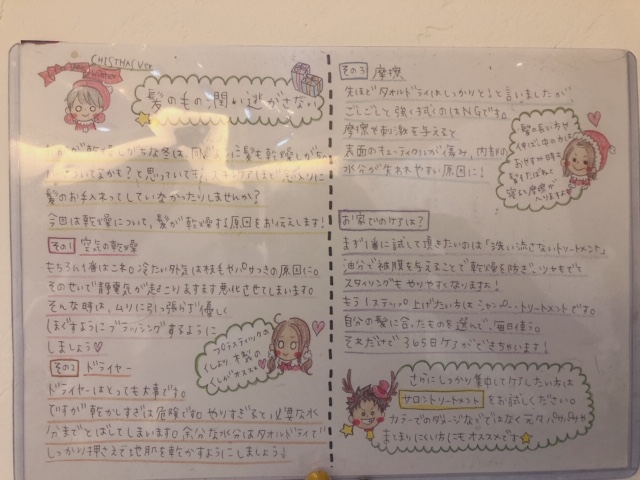 CHISTMAS Ver
Winter
髪のもの潤い逃がさない
が乾燥しがちな冬は、同じように髪も乾燥しがち
かも？と思っていても、スキンケアほど念入りに
髪のお手入れってしていなかったりしませんか？
今回は乾燥について、髪が乾燥する原因をお伝えします！
その1 空気の乾燥
もちろん1番はコレ。冷たい外気は枝毛やパサつきの原因に。
そのせいで静電気が起こりますます悪化させてしまいます。
そんな時は、ムリに引っ張らず優しく
ほぐすようにブラッシングするように
しましょう♡
プラスティックの
くしより、木製の
くしがオススメ
その2 ドライヤー
ドライヤーはとっても大事です。
ですが乾かしすぎは危険です。やりすぎると必要な水
分までとばしてしまいます。余分な水分はタオルドライで
しっかり押さえて地肌を乾かすようにしましょう♪
その3 摩擦
先ほどタオルドライはしっかりと！と言いましたが
ごしごしと強くふくのはNGです。
摩擦や刺激を与えると
表面のキューティクルが傷み、内部の
水分が失われやすい原因に！
髪の長い方や
伸ばし中の方は
おやすみ時も
髪をたばねて
寝ると摩擦が
へりますよ
お家でのケアは？
まず1番に試して頂きたいのは「洗い流さないトリートメント」
油分で被膜を与えることで乾燥を防ぎ、ツヤもでて
スタイリングもやりやすくなります！
もう1ステップ上げたい方はシャンプー・トリートメントです。
自分の髪に合ったものを選んで、毎日使う。
それだけで365日ケアができちゃいます！
さらにしっかり集中してケアしたい方は
サロントリートメントをお試しください。
カラーでのダメージなどではなく元々パサつきや
まとまりにくい方にもオススメです☆